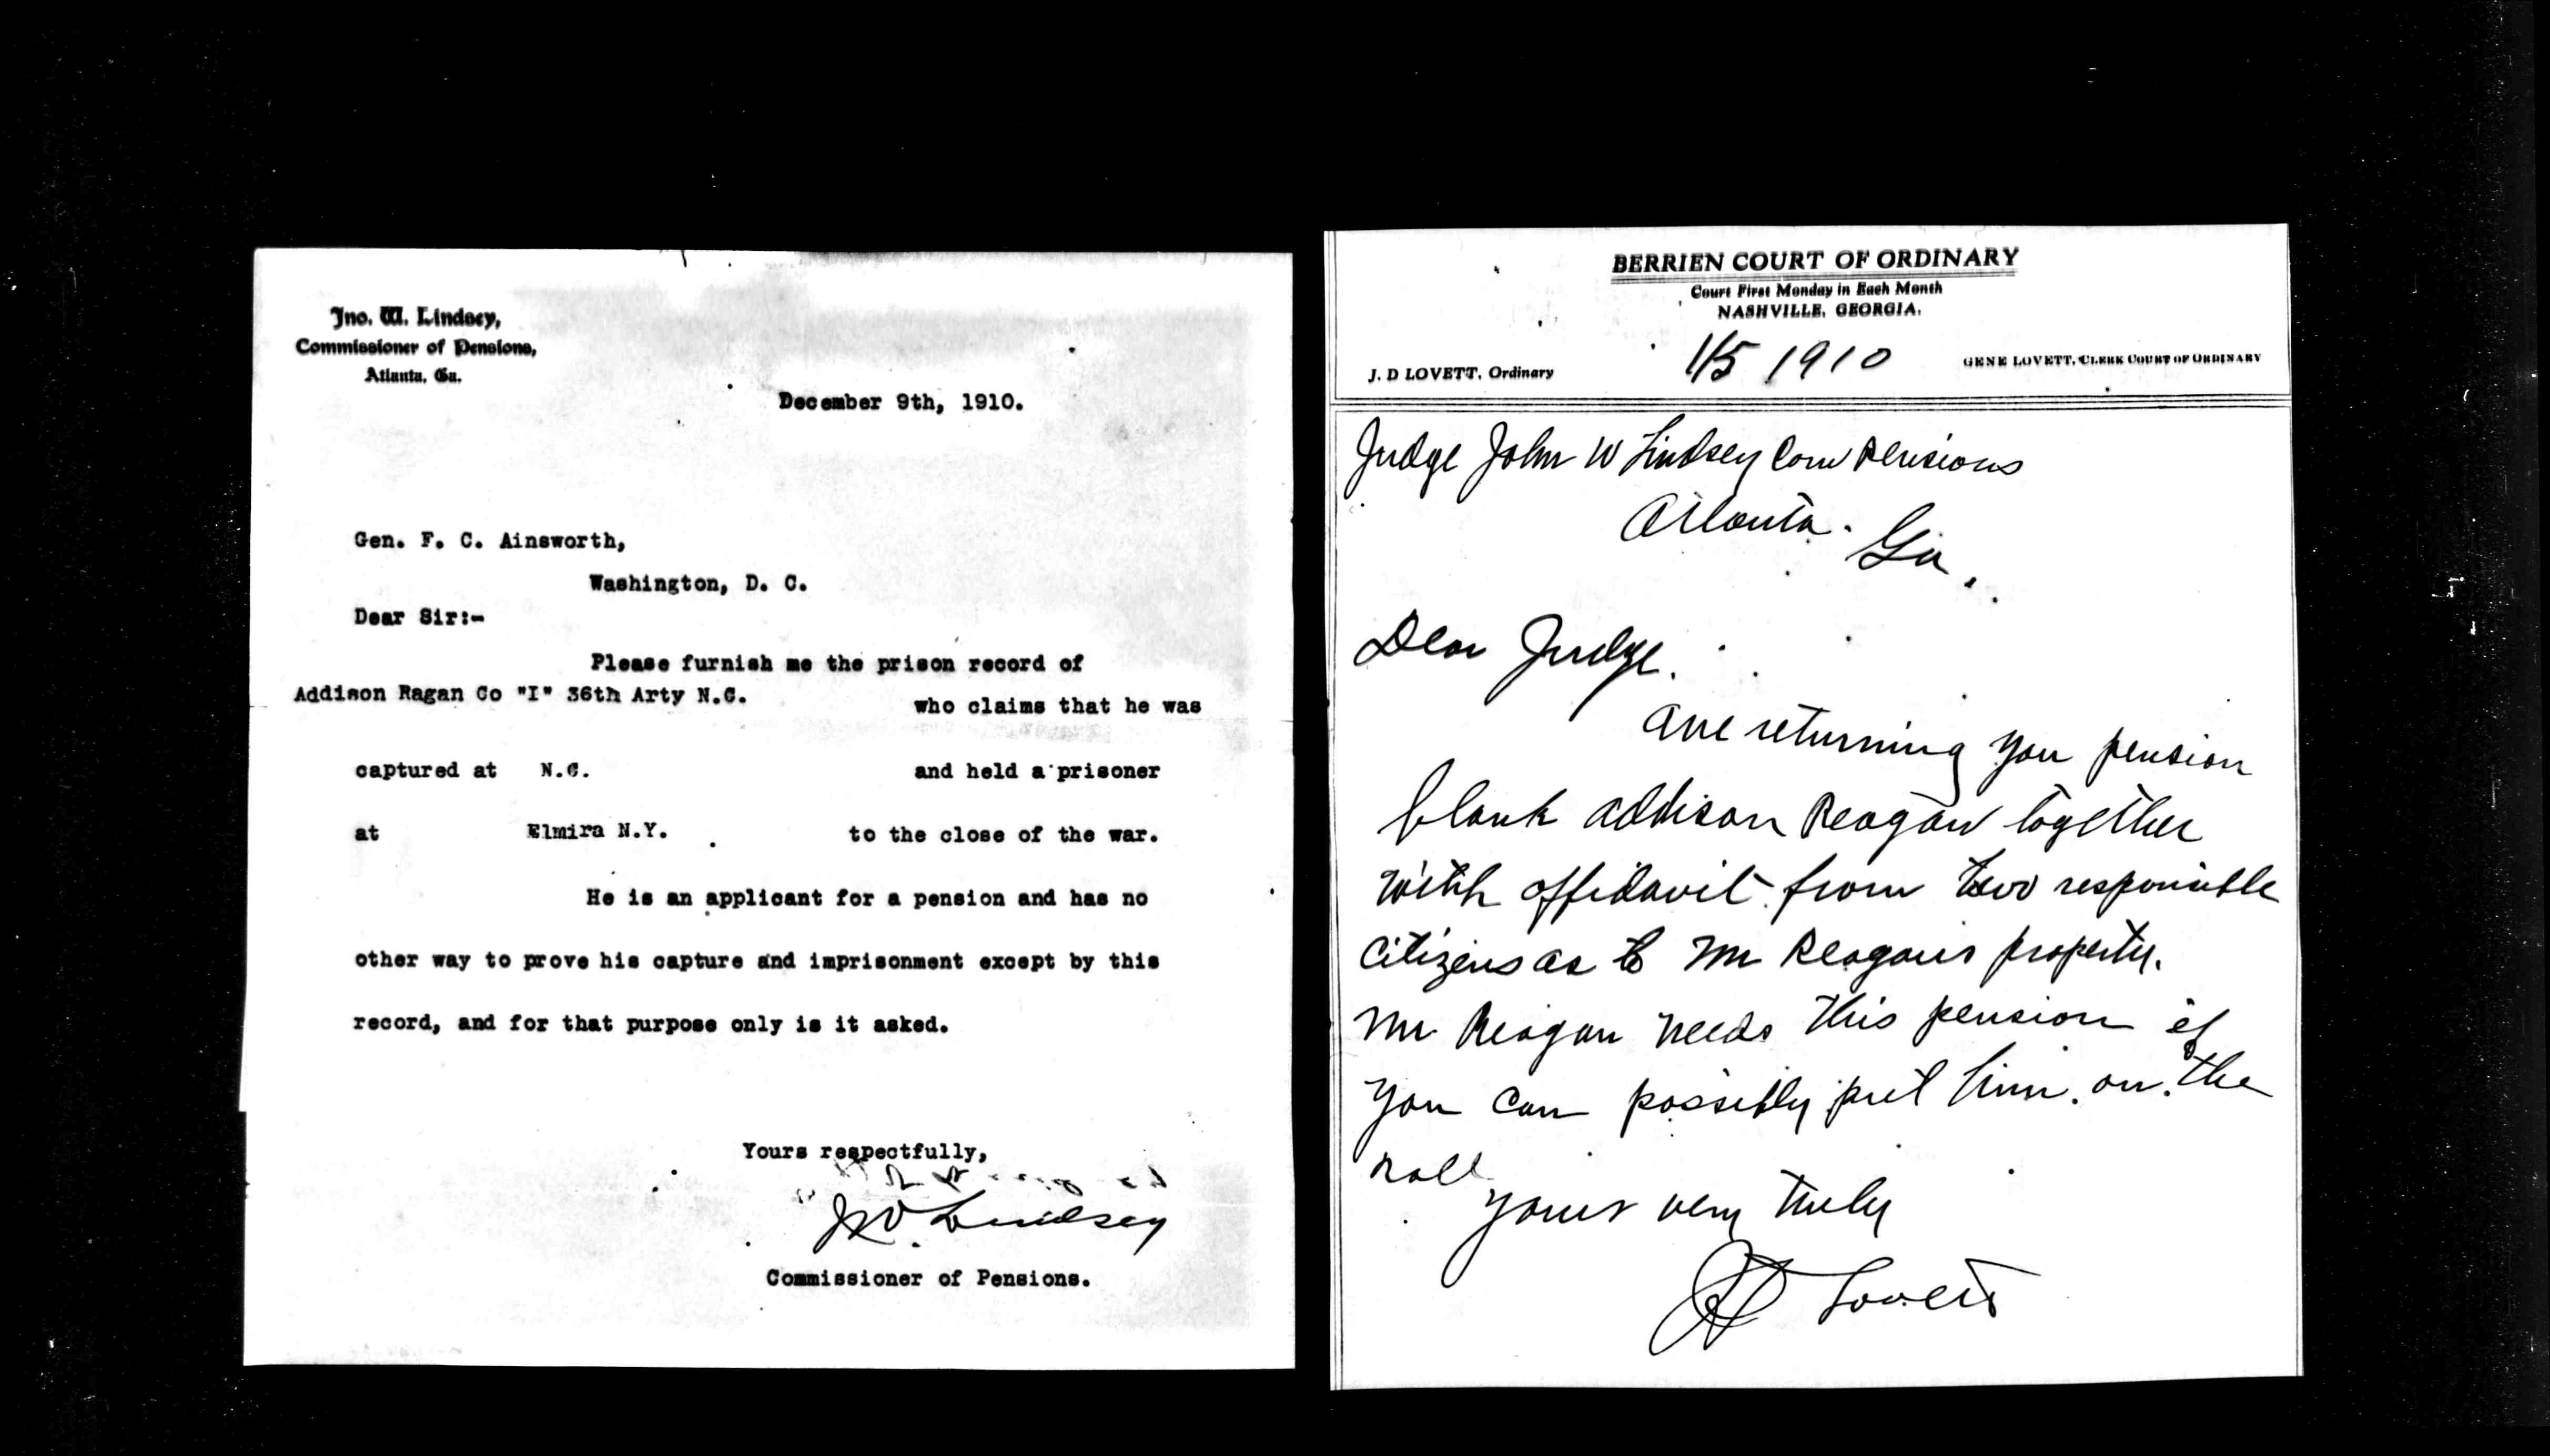 Jno. W. Lindsey,
Commissioner of Pensions,
Atlanta, Ga.
December 9th, 1910.
Gen. F. C. Ainsworth,
Washington, D. C.
Dear Sir:-
Please furnish me the prison record of
Addison Ragan Co "I" 36th Arty N.C.
who claims that he was
captured at N.C. and held a prisoner
at Elmira N.Y. to the close of the war.
He is an applicant for a pension and has no
other way to prove his capture and imprisonment except by this
record, and for that purpose only is it asked.
Yours respectfully,
JW Lindsey
Commissioner of Pensions.
BERRIEN COURT OF ORDINARY
Court First Monday in Each Month
NASHVILLE, GEORGIA.
J. D LOVETT, Ordinary
1/5 1910
GENE LOVETT, CLERK COURT OF ORDINARY
Judge John W Lindsey Com Pensions
Atlanta. Ga.
Dear Judge.
Are returning you pension
blank Addison Reagan together
with affidavit from two responsible
citizens as to Mr Reagans property.
Mr Reagan needs this pension if
you can possibly put him on the
roll
yours very truly
JD Lovett